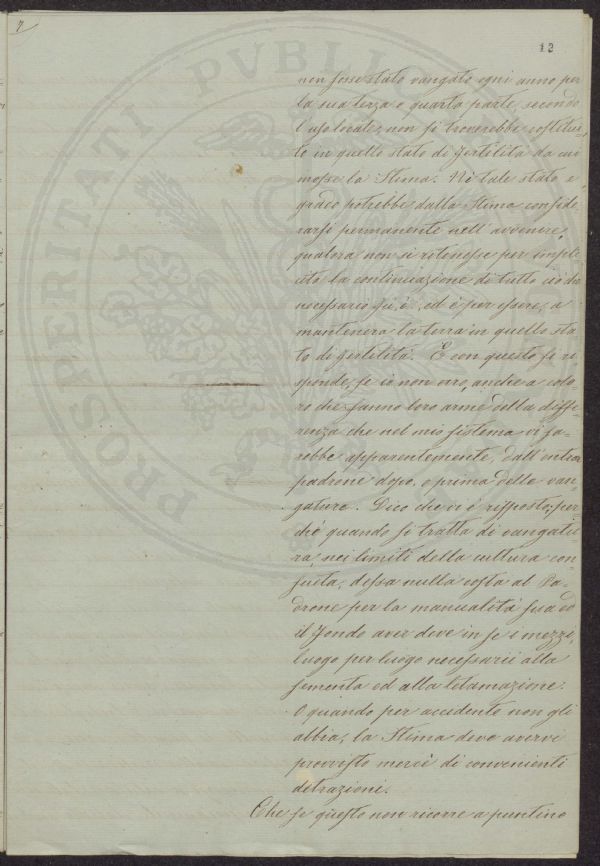 7
12
PROSPERITATI PUBLICAE
non fosse stato vangato ogni anno per
la sua terza o quarta parte, secondo
l'uso locale, non si troverebbe costitui-
to in quello stato di fertilità da cui
mosse la Stima. Nè tale stato e
grado potrebbe dalla Stima conside-
rarsi permanente nell'avvenire,
qualora non si ritenesse per impli-
cito la continuazione di tutto ciò che
necessario fu, è, ed è per essere, a
mantenere la terra in quello sta-
to di fertilità. E con questo si ri-
sponde, se io non erro, anche a colo-
ro che fanno loro arme della diffe-
renza che nel mio sistema vi sa-
rebbe apparentemente, dall'entrar
padrone dopo, o prima delle van-
gature. Dico che vi è risposto, per-
chè quando si tratta di vangatu-
ra, nei limiti della cultura con-
sueta, dessa nulla costa al Pa-
drone per la manualità sua ed
il fondo aver deve in se i mezzi,
luogo per luogo necessarii alla
sementa ed alla letamazione:
O quando per accidente non gli
abbia, la Stima deve avervi
provvisto mercè di convenienti
detrazioni.
Che se questo non ricorre a puntino